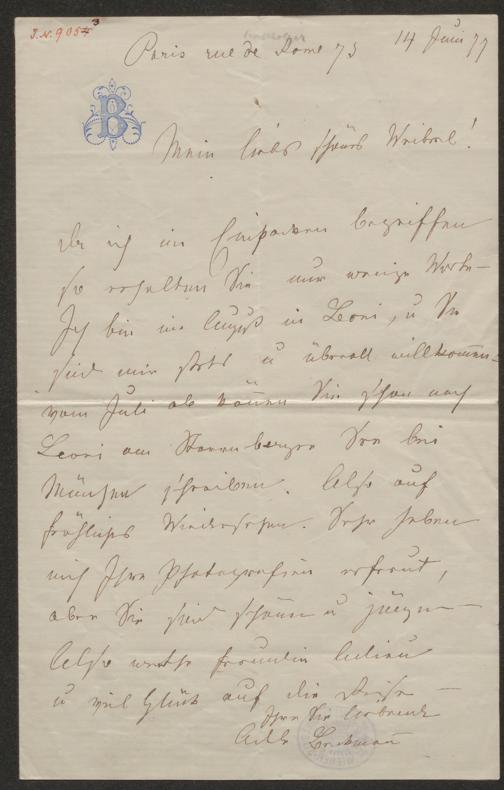 J.N. 9053
Paris rue de Rome 73 14 Juni 77
B
Mein liebes schönes Weiberl!
da ich im Einpacken begriffen
so erhalten Sie nur wenige Worte –
Ich bin im August in Leoni, u Sie
sind mir stets u überall willkommen –
vom Juli ab können Sie schon nach
Leoni am Starenberger See bei
München schreiben. Also auf
fröhliches Wiedersehen. Sehr haben
mich Ihre Photografien erfreut,
aber Sie sind schöner u jünger –
Also werthe Freundin Adieu
u viel Glück auf die Reise –
Ihre Sie liebende